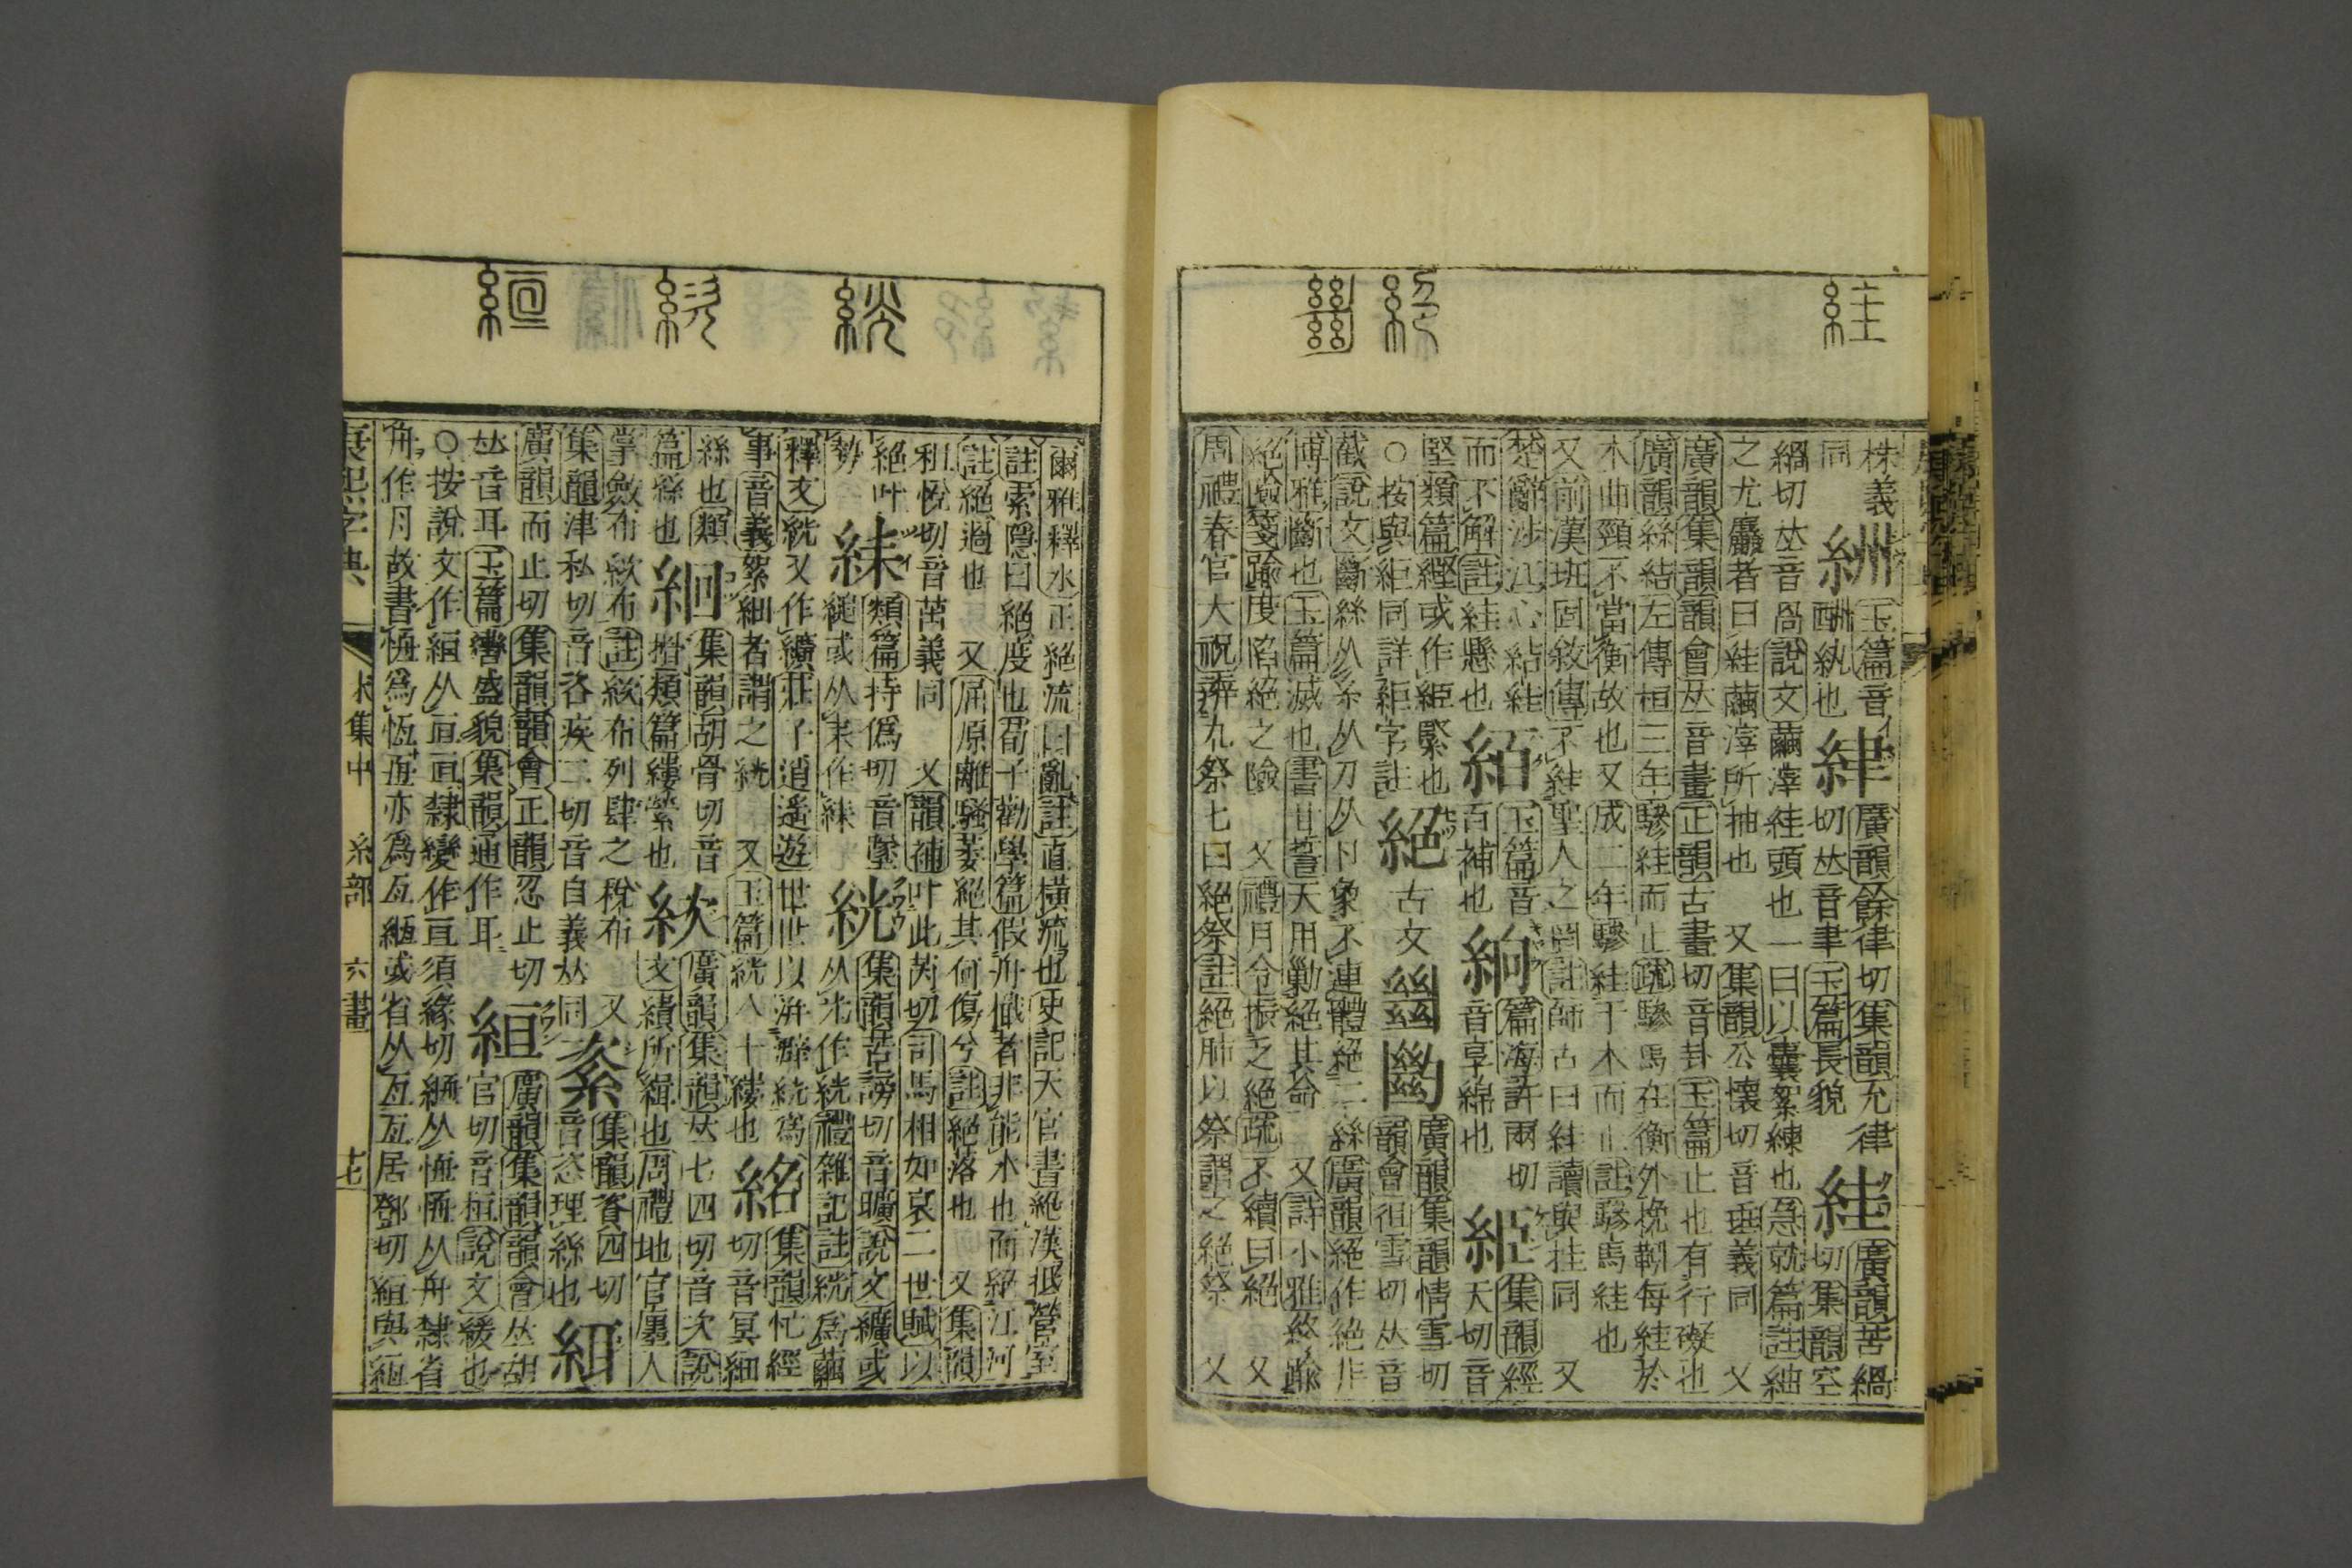 株義
同
絒
玉篇音
酬紈也
繂
廣韻餘律切集韻允律
切𠀤音聿玉篇長貌
絓
廣韻苦緺
切集韻空
緺切𠀤音咼說文繭滓絓頭也一曰以囊絮練也急就篇註紬
之尤麤者曰絓繭滓所抽也 又集韻公懷切音乖義同 又
廣韻集韻韻會𠀤音畫正韻古畫切音卦玉篇止也有行礙也
廣韻絲結左傳桓三年驂絓而止疏驂馬在衡外挽靷每絓於
木由頸不當衡故也又成二年驂絓于木而止註驂馬絓也
又前漢班固敘傳不絓聖人之罔註師古曰絓讀與挂同 又
楚辭涉江心絓結
而不解註絓懸也
絔
玉篇音
百補也
𦀇
篇海許兩切
音享綿也
䋫
集韻經
天切音
堅類篇緊或作䋫緊也
○按與絚同詳絚字註
絕
古文
𢇍
廣韻集韻情雪切
韻會徂雪切𠀤音
截說文斷絲从糸从刀从卩象不連體絕二絲廣韻絕作絶非
博雅斷也玉篇滅也書甘誓天用勦絕其命 又詩小雅終踰
絕險箋踰度陷絕之險 又禮月令振乏絕疏不續曰絕 又
周禮春官大祝辨九祭七曰絕祭註絕肺以祭謂之絕祭 又
爾雅釋水正絕流曰亂註直橫流也史記天官書絕漢抵營室
註索隱曰絕度也荀子勸學篇假舟檝者非能水也而絕江河
註絕過也 又屈原離騷萎絕其何傷兮註絕落也 又集韻
租悅切音蕝義同 又韻補叶此芮切司馬相如哀二世賦以
絕叶
勢
絊
類篇持僞切音墜
縋或从朱作絊
絖
集韻苦謗切音曠說文纊或
从光作絖禮雜記註絖爲繭
釋文絖又作纊莊子逍遙遊世世以洴澼絖爲
事音義絮細者謂之絖 又玉篇絖八十縷也
絡
集韻忙經
切音冥細
絲也類
篇絲也
絗
集韻胡骨切音
搰類篇縷縈也
絘
廣韻集韻𠀤七四切音次說
文績所緝也周禮地官廛人
掌斂布絘布註絘布列肆之稅布 又
集韻津私切音咨疾二切音自義𠀤同
紊
集韻資四切
音恣理絲也
絙
廣韻而止切集韻韻會正韻忍止切
𠀤音耳玉篇轡盛貌集韻通作耳
絙
廣韻集韻韻會𠀤胡
官切音桓說文緩也
○按說文作絙从亘亘隸變作亘須緣切緪从恆恆从舟隸省
舟作月故書恆爲恆亘亦爲亙緪或省从亙亙居鄧切絙與緪
康熙字典
未集中
糸部
六畫
十七